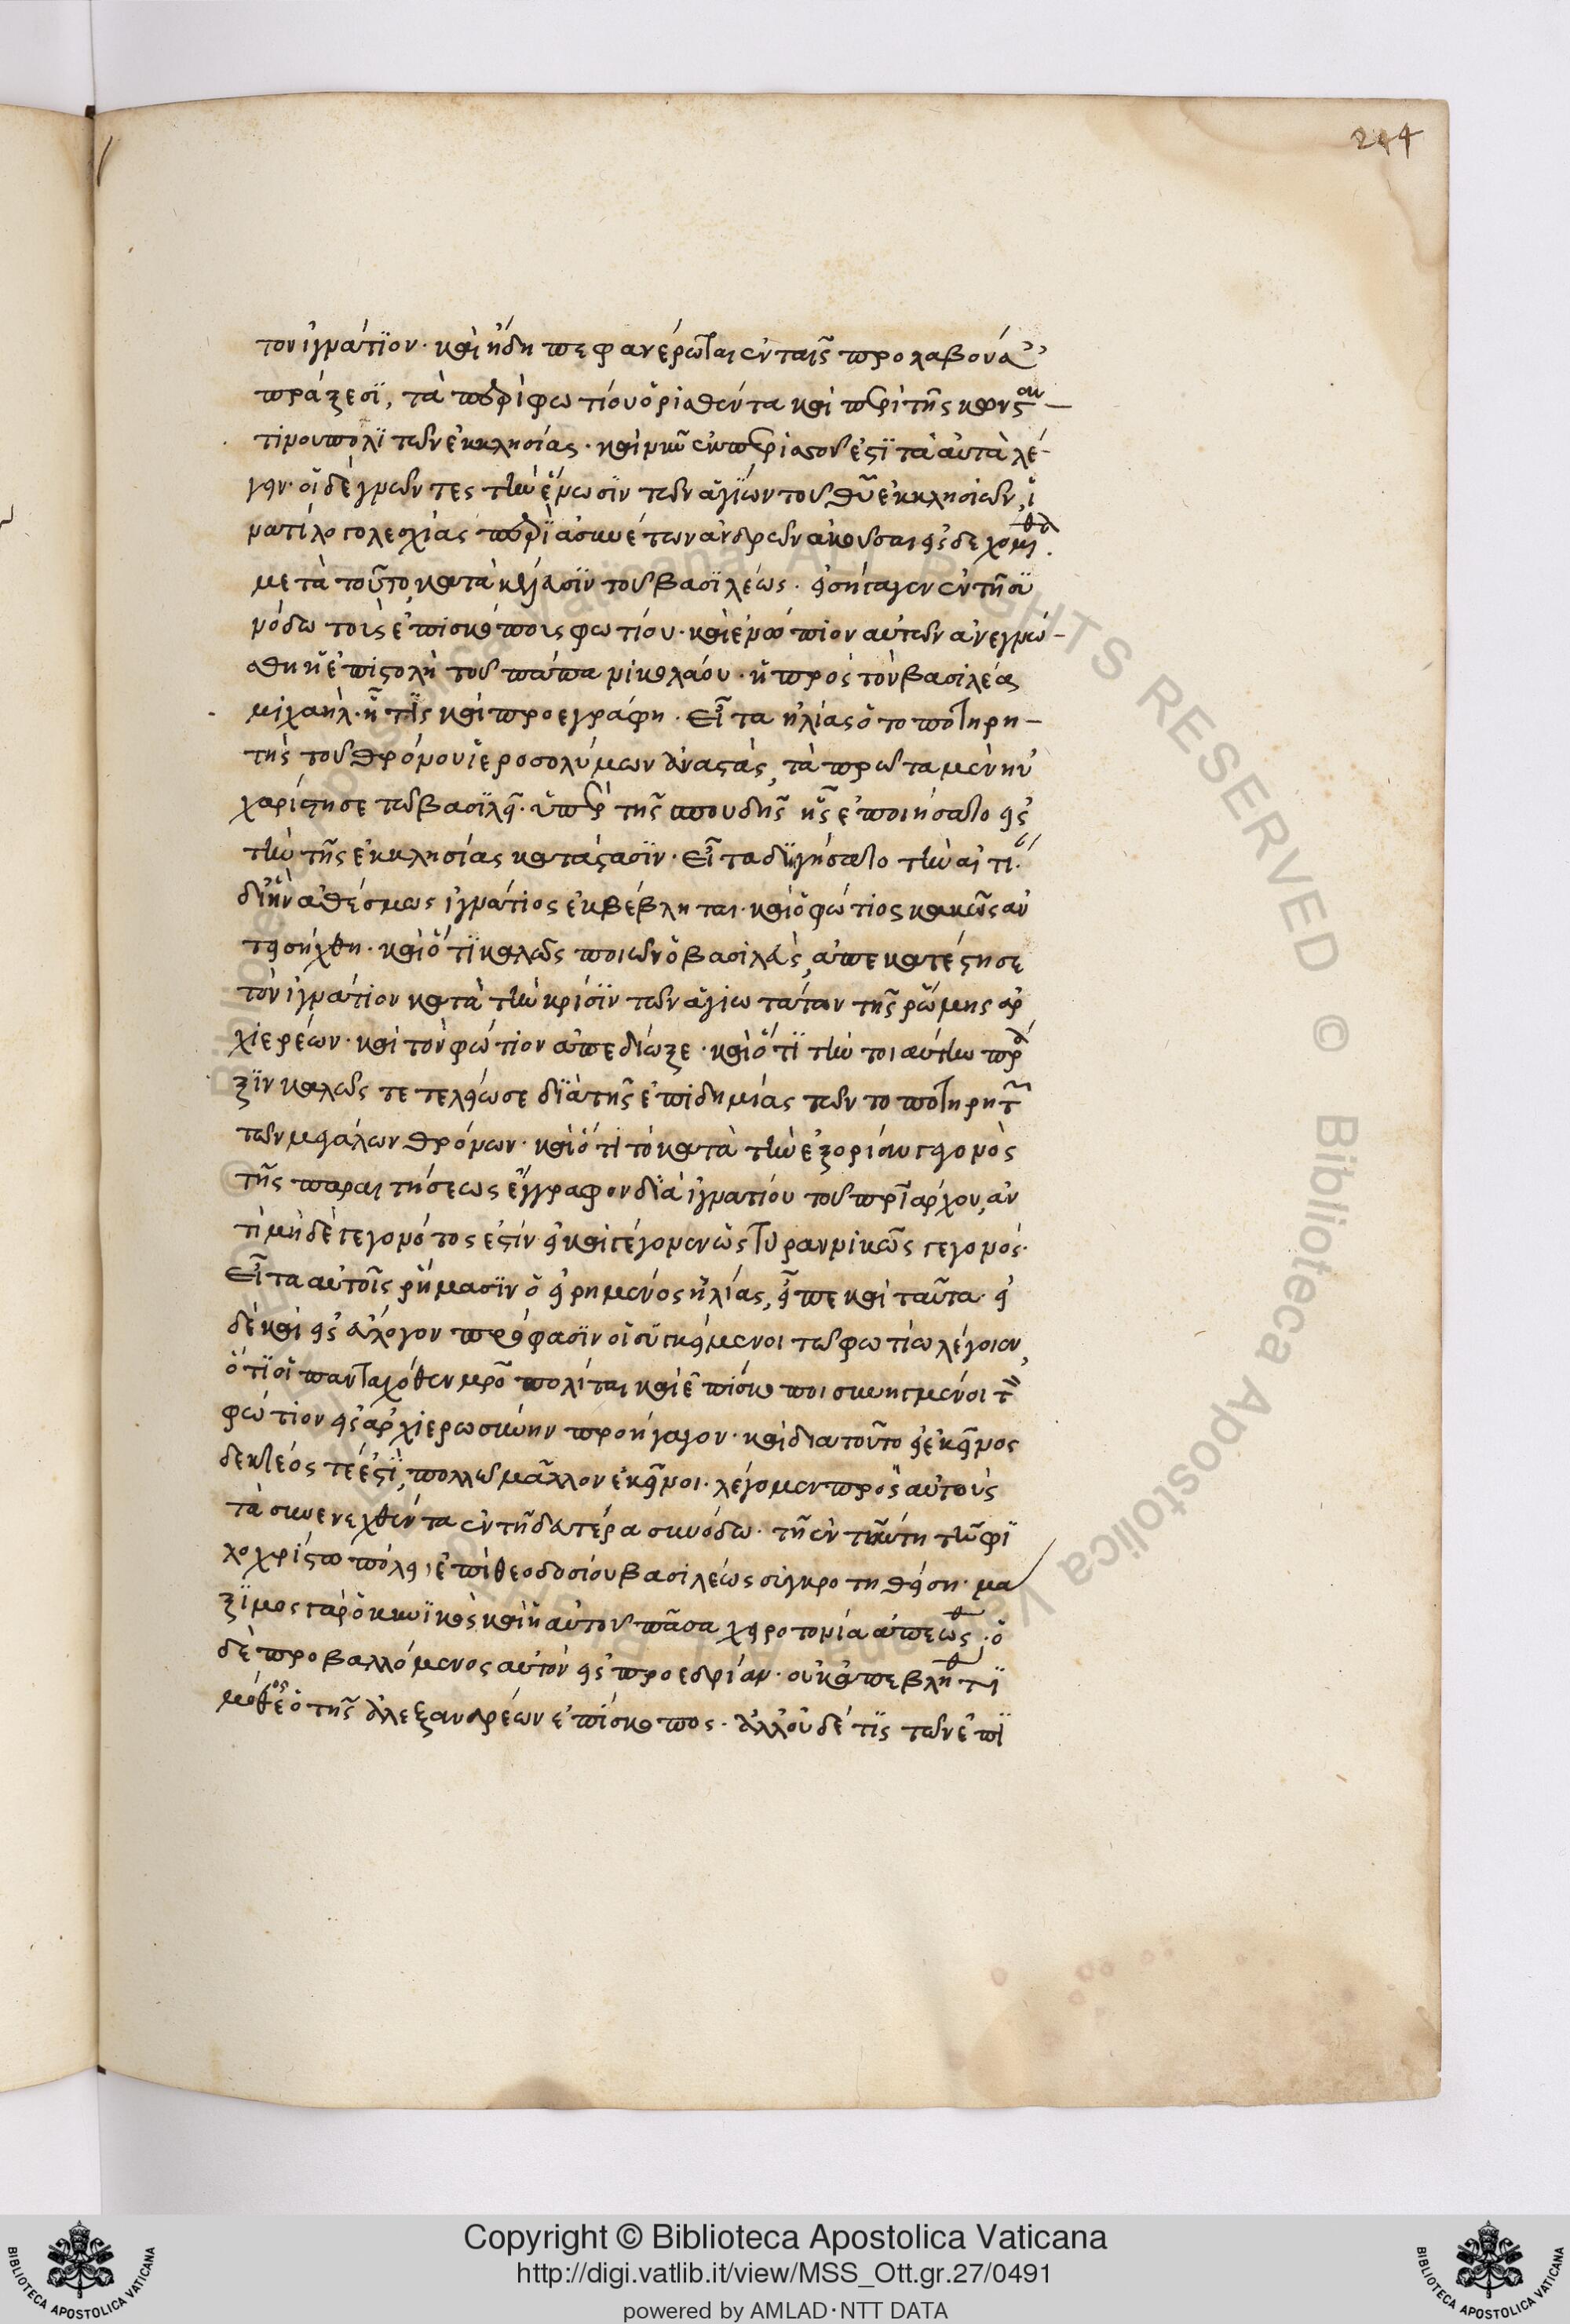 244
τὸν ἰγνάτϊον· καὶ ἤδη πεφανέρωται ἐν ταῖς προλαβούσαις
πράξεσϊ, τὰ περὶ φωτίου ὁρισθέντα καὶ περὶ τῆς κωνσταν–
τινουπολϊτῶν ἐκκλησίας· καὶ νῦν ἐκ περισσοῦ ἐστϊ τὰ αὐτὰ λέ–
γειν· οἱ δὲ γνῶντες τὴν ἕνωσϊν τῶν ἁγίων τοῦ θυ ἐκκλησιῶν,
ματολογολεσχίας περϊ ἀσυνέτων ἀνδρῶν ἀκοῦσαι οὐ δεχομεθα.
μετὰ τοῦτο, κατὰ κέλευσϊν τοῦ βασϊλέως· εἰσήγαγεν ἐν τῆ συ
νόδω τοὺς ἐπισκόπους φωτίου· καὶ ἐνώπιον αὐτῶν ἀνεγνώ–
σθη ἡ ἐπιστολὴ τοῦ πάπα νικολάου· ἡ πρὸς τὸν βασιλέα
μιχαὴλ· ἥ τϊς καὶ προεγράφη. Εἶτα ἠλίας ὁ τοποτηρη–
τὴς τοῦ θρόνου ἱεροσολύμων ἀναστὰς, τὰ πρῶτα μὲν ηὐ
χαρίστησε τῶ βασϊλεῖ· ὑπὲρ τῆς σπουδῆς ἧς ἐποιήσατο εἰς
τὴν τῆς ἐκκλησίας κατάστασϊν· Εἶτα διηγήσατο τὴν αἰτίαν
δι' ἣν ἀθέσμως ἰγνάτιος ἐκβέβληται· καὶ ὁ φώτιος κακῶς ἀν
τεισήχθη· καὶ ὅτϊ καλῶς ποιῶν ὁ βασιλεὺς, ἀπεκατέστησε
τὸν ἰγνάτιον κατὰ τὴν κρίσϊν τῶν ἁγιωτάτων τῆς ῥώμης ἀρ
χιερέων· καὶ τὸν φώτιον ἀπεδίωξε· καὶ ὅτϊ τὴν τοιαύτην πρᾶ
ξϊν καλῶς τετελείωσε δϊὰ τῆς ἐπιδημίας τῶν τοποτηρητῶν
τῶν μεγάλων θρόνων· καὶ ὅτι τὸ κατὰ τὴν ἐξορίαν γεγονὸς
τῆς παραιτήσεως ἔγγραφον δϊὰ ἰγνατίου τοῦ πριάρχου, ἀν
τὶ μηδὲ γεγονότος ἐστίν· εἰ καὶ γέγονεν ὡς τυραννικῶς γεγονός·
Εἶτα αὐτοῖς ῥήμασϊν ὁ εἰρημένος ἠλίας, εἶπε καὶ ταῦτα· εἰ
δὲ καὶ εἰς εὔλογον πρόφασϊν οἱ συγκείμενοι τῶ φωτίω λέγοιεν,
ὅτϊ οἱ πανταχόθεν μροπολίται καὶ ἐπίσκοποι συνηγμένοι τὸν
φώτιον εἰς ἀρχιερωσύνην προήγαγον· καὶ διατοῦτο εἰ ἐκεῖνος
δεκτέός τέ ἐστϊ, πολλῶ μᾶλλον ἐκεῖνοι· λέγομεν πρὸς αὐτοὺς
τὰ συνενεχθέντα ἐν τῆ δευτέρα συνόδω· τῆ ἐν ταύτη τῆ φϊ
λοχρίστω πόλει, ἐπὶ θεοδοσίου βασιλέως συγκροτηθείση· μα
ξϊμος γὰρ ὁ κυνϊκὸς καὶ ἡ αὐτοῦ πᾶσα χειροτονία ἀπεώσθη· ὁ
δὲ προβαλλόμενος αὐτὸν εἰς προεδρίαν· οὐκ ἀπεβλήθη τϊ
μόθεος ὁ τῆς ἀλεξανδρέων ἐπίσκοπος. ἀλλ' οὐδέ τϊς τῶν ἐπϊ
Copyright © Biblioteca Apostolica Vaticana
http://digi.vatlib.it/view/MSS_Ott.gr.27/0491
powered by AMLAD·NTT DATA